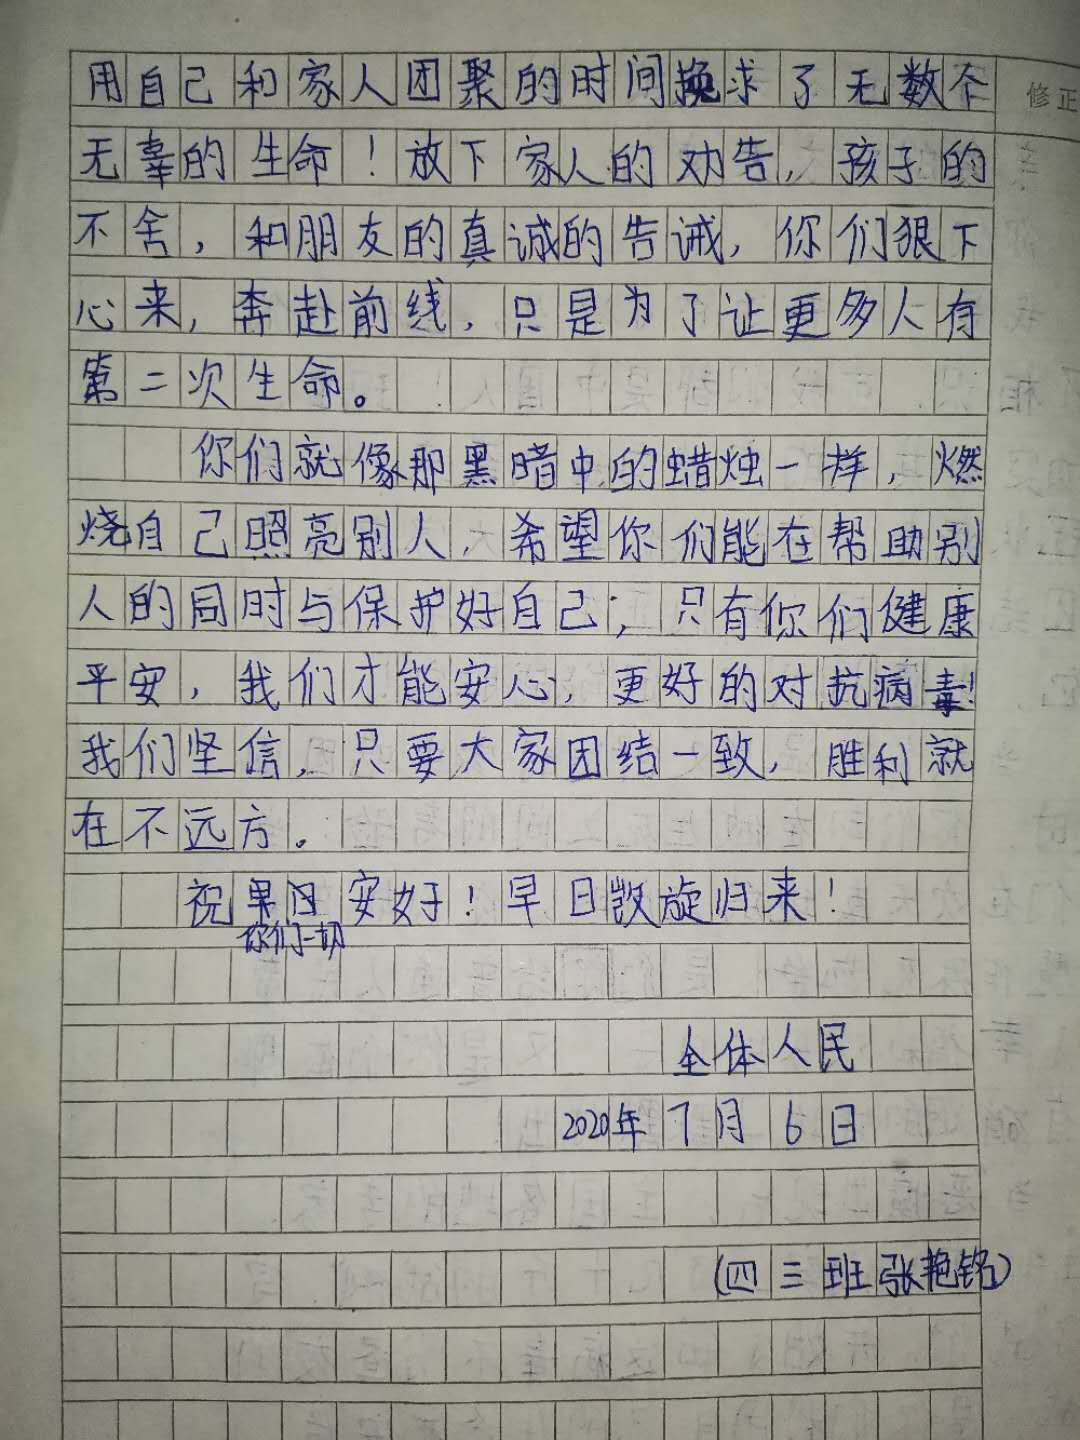 用自己和家人团聚的时间换求了无数个
修正
无辜的生命！放下家人的劝告，孩子的
不舍，和朋友的真诚的告诫，你们狠下
心来，奔赴前线，只是为了让更多人有
第二次生命。
你们就像那黑暗中的蜡烛一样，燃
烧自己照亮别人，希望你们能在帮助别
人的同时与保护好自己；只有你们健康
平安，我们才能安心，更好的对抗病毒！
我们坚信，只要大家团结一致，胜利就
在不远方。
祝 安好！早日凯旋归来！
你们一切
全体人民
2020年7月6日
(四三班张艳铭)